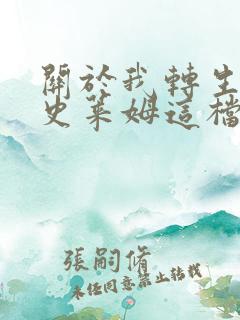 關於我轉生
史萊姆這檔
張嗣脩
未經同意禁止轉載